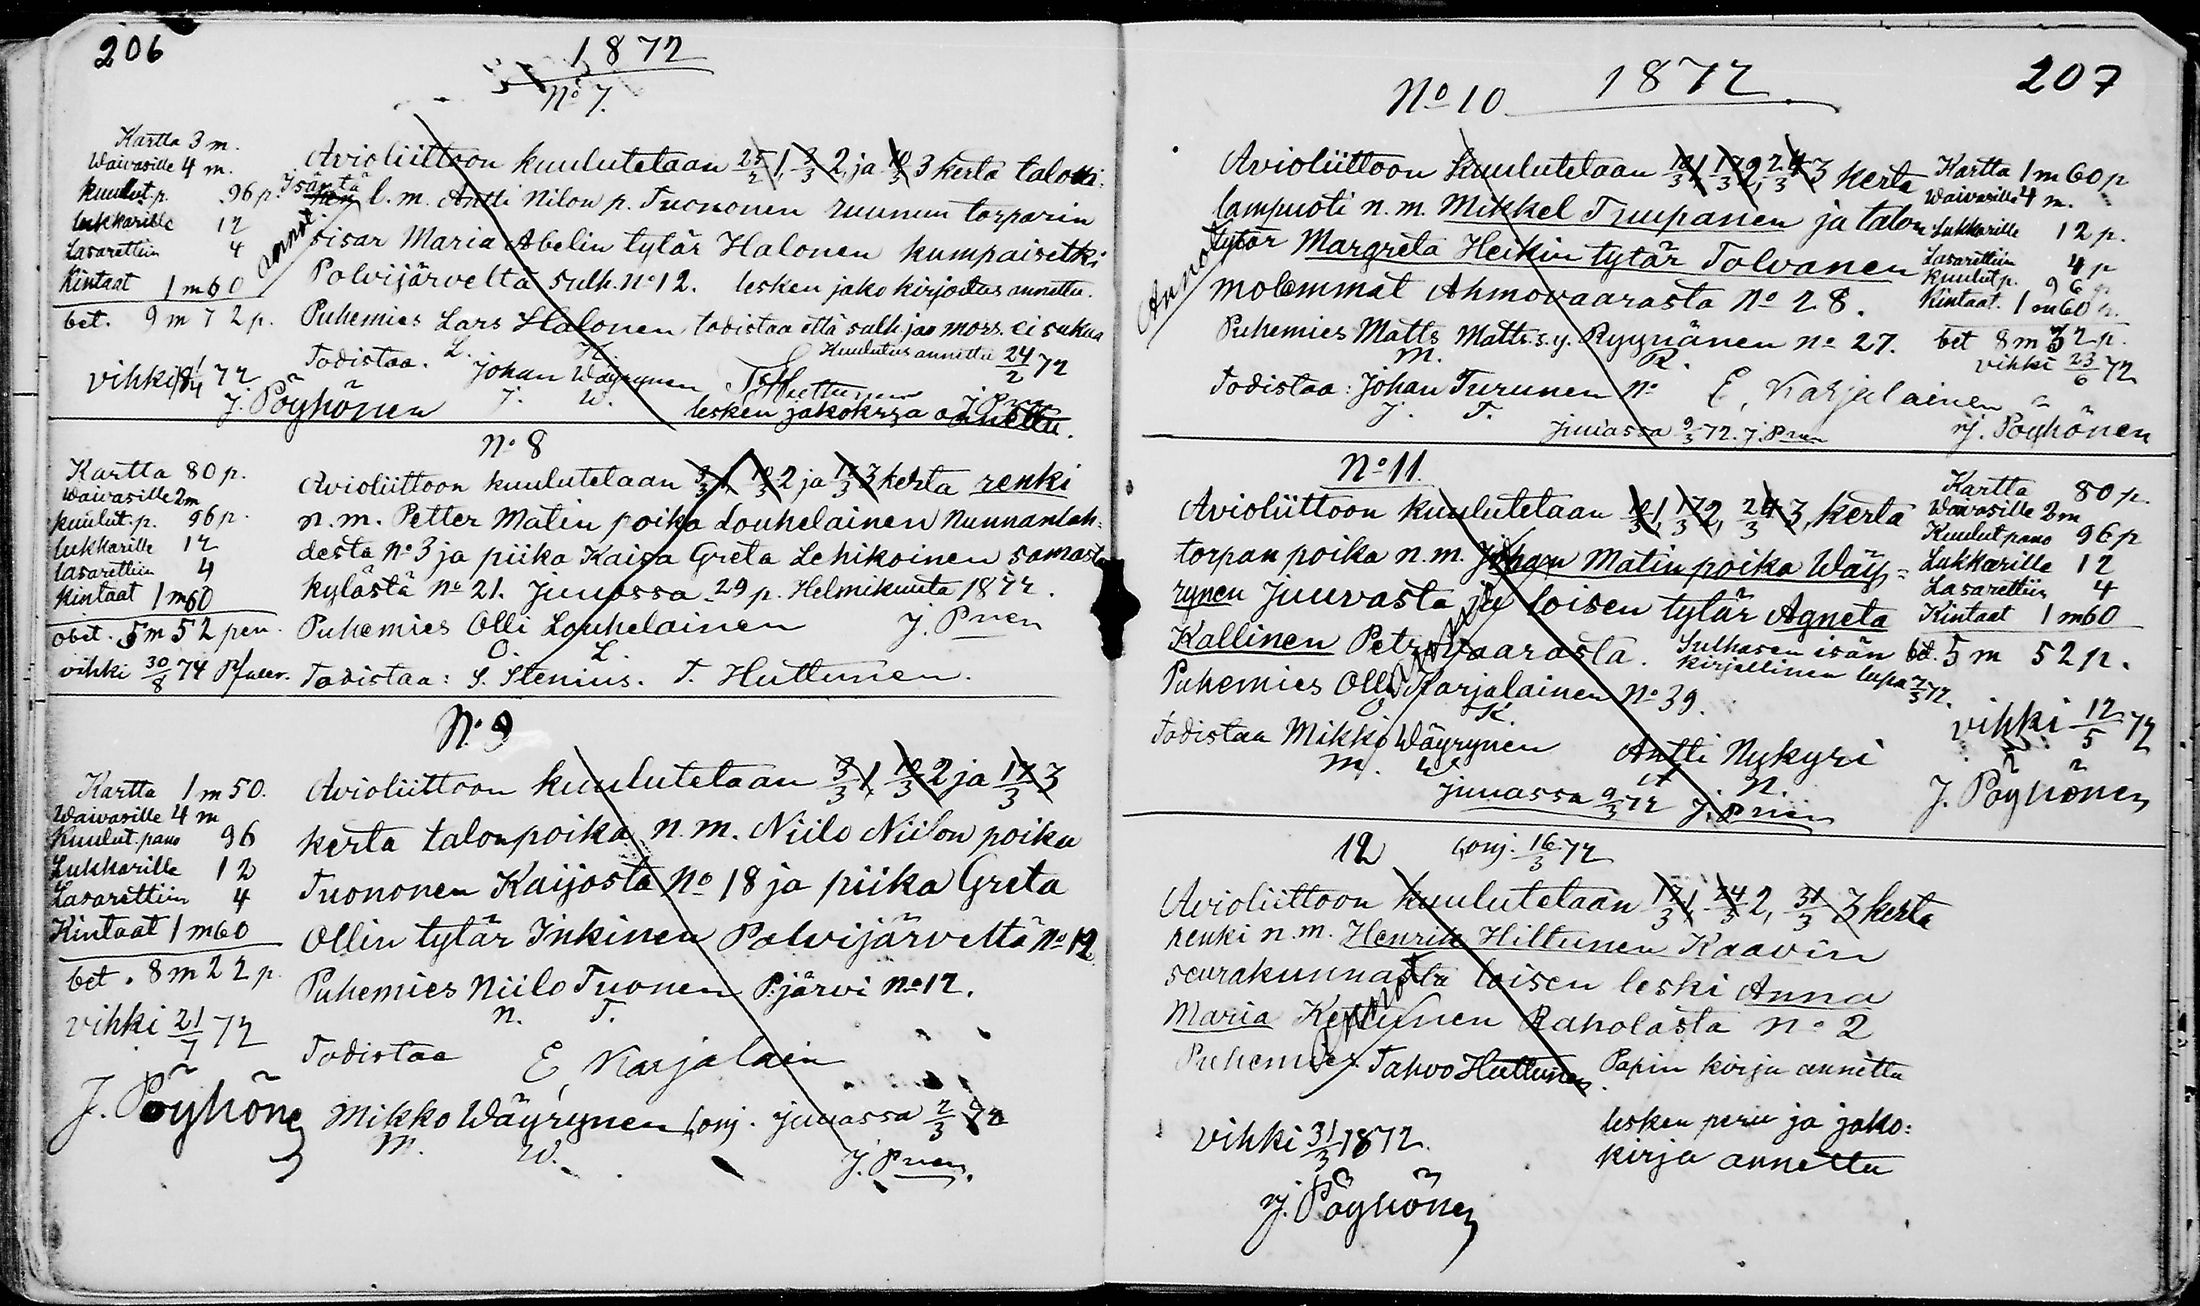 206
1872
No 7.
Kartta 3 m.
Waivasille 4 m.
kuulut.p. 96 p.
lukkarille 12
Lasarettiin 4
Kintaat 1 m 60
bet. 9 m 72 p.
vihki 72
J. Pöyhönen
Avioliittoon kuulutetaan 25/2 1, 3/3 2, ja 10/3 3 kerta talon
Isäntä l. m. Antti Nilon p. Tuononen ruunun torparin
annot. sisar Maria Abelin tytär Halonen kumpaisetki
Polvijärveltä sulh. No 12. lesken jako kirjoitus annettu.
Puhemies Lars Halonen todistaa että sulh. ja mors. ei sukua
L. H.
Kuulutus annettu 24/2 72
Todistaa. Johan Wäyrynen T. Huttunen
J. W. J. Pnen
lesken jakokirja annettu.
No 8
Kartta 80 p.
Waivasille 2 m
kuulut.p. 96 p.
lukkarille 12
lasarettiin 4
Kintaat 1 m 60
bet. 5 m 52 pen.
vihki 30/8 74 Pfaler.
Avioliittoon kuulutetaan 3/3 1, 10/3 2 ja 17/3 3 kerta renki
n.m. Petter Matin poika Louhelainen Nunnanlah-
desta No 3 ja piika Kaisa Greta Lehikoinen samasta
kylästä No 21. Juuassa 29 p. Helmikuuta 1872.
Puhemies Olli Louhelainen J. Pnen
O. L.
Todistaa: S. Stenius. T. Huttunen.
N. 9
Kartta 1 m 50.
Waivasille 4 m
Kuulut.pano 96
Lukkarille 12
Lasarettiin 4
Kintaat 1 m 60
bet. 8 m 22 p.
vihki 21/7 72
J. Pöyhönen
Avioliittoon kuulutetaan 3/3 1, 10/3 2 ja 17/3 3
kerta talonpoika n.m. Niilo Niilon poika
Tuononen Kaijosta No 18 ja piika Greta
Ollin tytär Inkinen Polvijärveltä No 12
Puhemies Niilo Tuonen P:järvi No 12.
N. T.
Todistaa E, Karjalain
Mikko Wäyrynen Conj. Juuassa 2/3 72
M. W. J. Pnen.
207
1872
No 10
Avioliittoon kuulutetaan 10/3 1, 17/3 2, 24/3 3 kerta
lampuoti n.m. Mikkel Truupanen ja talon
Annot. tytär Margreta Heikin tytär Tolvanen
molemmat Ahmovaarasta No 28.
Puhemies Matts Matts.s.y. Ryynänen No 27.
M. R.
Todistaa: Johan Turunen No E, Karjalainen
J. T. Juuassa 9/3 72. J. Pnen
Kartta 1 m 60 p
Waivasille 4 m.
Lukkarille 12 p.
Lasarettiin 4 p
kuulut p. 96 p
Kintaat. 1 m 60 p.
bet 8 m 32 p.
vihki 23/6 72
J. Pöyhönen
No 11.
Avioliittoon kuulutetaan 10/3 1, 17/3 2, 24/3 3, kerta
torpan poika n.m. Johan Matin poika Wäy-
rynen Juuvasta ja loisen tytär Agneta
Kallinen Petrovaarasta. Sulhasen isän
kirjallinen lupa 7/3 72.
Puhemies Olli Karjalainen No 39.
O K.
Todistaa Mikko Wäyrynen Antti Nykyri
M. W. A N.
Juuassa 9/3 72 J. Pnen
Kartta 80 p.
Waivasille 2 m
Kuulut pano 96 p
Lukkarille 12
Lasarettiin 4
Kintaat 1 m 60
bet. 5 m 52 p.
vihki 12/5 72
J. Pöyhönen
12 Conj. 16/3 72
Avioliittoon kuulutetaan 17/3 1, 24/3 2, 31/3 3 kerta
renki n.m. Henrik Hiltunen Kaavin
seurakunnasta loisen leski Anna
Maria Kettunen Raholasta No 2
Puhemies Tahvo Huttunen Papin kirja annettu
lesken peru ja jako:
kirja annettu
vihki 31/3 1872.
J. Pöyhönen